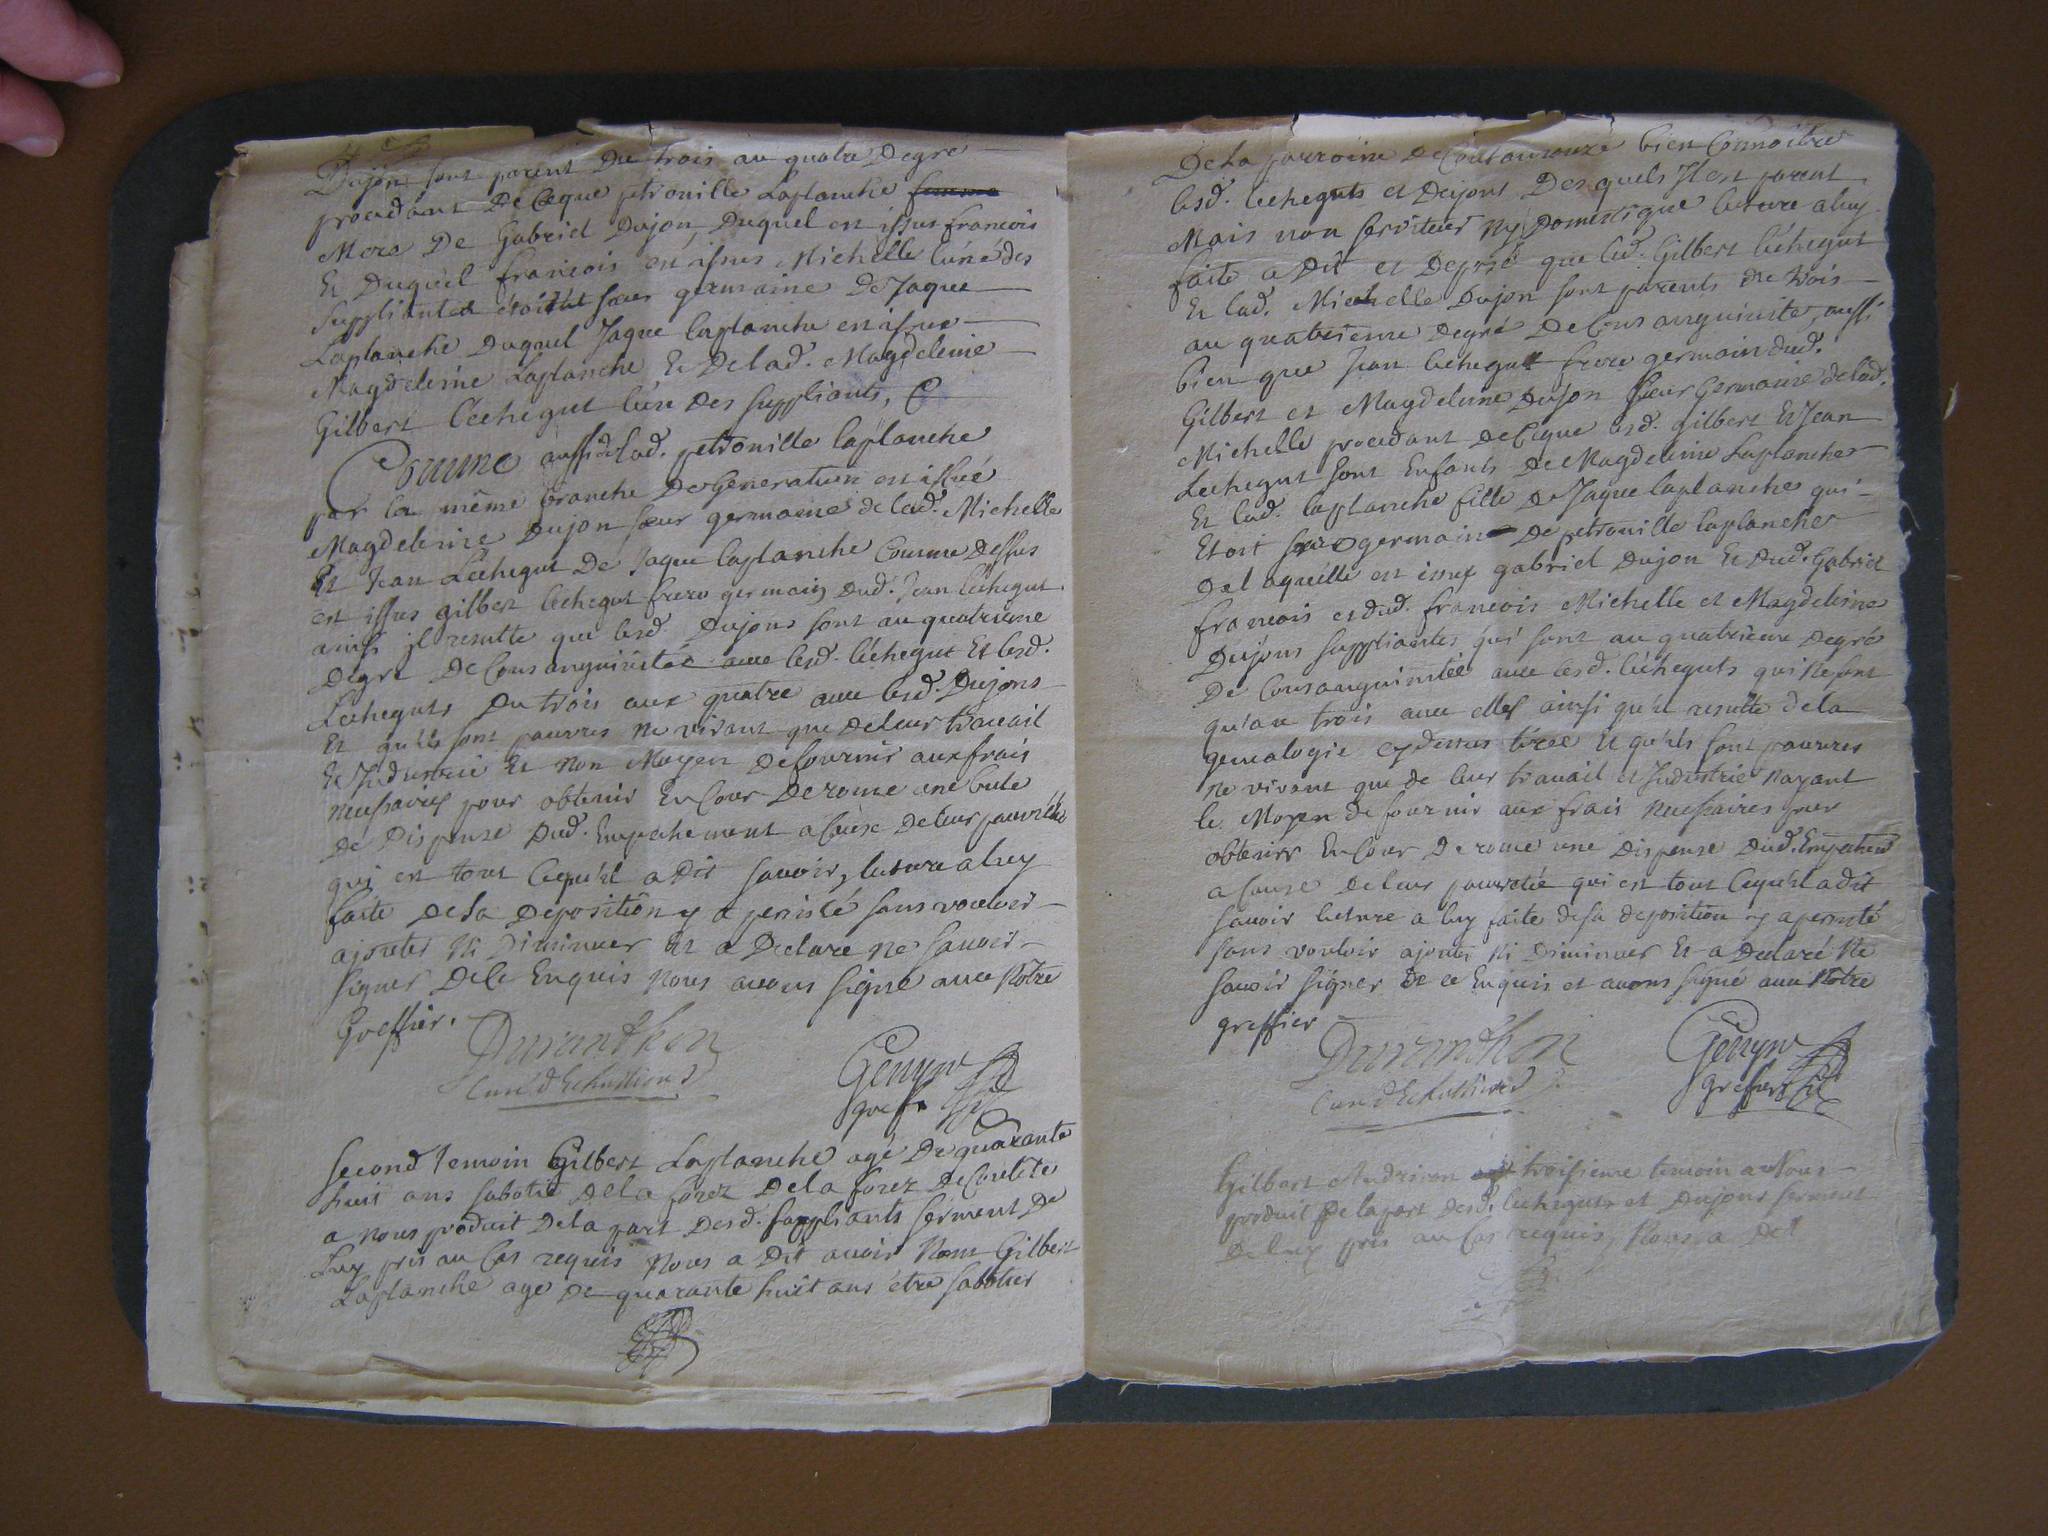 Dujon sont parent Du trois au quatre Degré
procedant De Ceque petronille Laplanche femme
Mere De Gabriel Dujon, Duquel est issus francois
Et Duquel francois est issus Michelle l'une des
Suppliantes étoitut sœur germaine De Jaque
Laplanche Duquel Jaque laplanche est issue
Magdeleine Laplanche Et De lad. Magdeleine
Gilbert Léchegut l'un Des suppliants, C
Comme aussi de lad. petronille laplanche
par la même branche De Generation est issuë
Magdeleine Dujon sœur germaine de lad. Michelle
Et Jean Lechegut De Jaque laplanche Comme Dessus
est issus gilbert lechegut frere germain dud. Jean Lechegut
ainsi il resulte que lesd. Dujons sont au quatrieme
Degré De Consanguinitée avec lesd. léchegut Et lesd.
Lecheguts Du trois aux quatre avec lesd. Dujons
Et qu'ils sont pauvres ne vivant que De leur travail
Et Industrie Et non Moyen De fournir aux frais
necessaires pour obtenir En Cour De rome une bule
De Dispense Dud. Empechement a Cause De leur pauvreté
qui est tout Cequ'il a Dit savoir, lecture a luy
faite De Sa Deposition y a persisté sans vouloir
ajouter Ni Diminuer Et a Declaré ne savoir
signer De Ce Enquis nous avons signé avec Notre
Greffier.
Duranthon
Curé d'Echassieres
Genyw
gref.
Second Temoin Gilbert Laplanche agé De quarante
huit ans sabotié De la forez De la forez De
a nous produit De la part Desd. Suppliants serment De
Luy pris au Cas requis nous a Dit avoir Nom Gilbert
Laplanche agé De quarante huit ans être sabotier
De La parroisse De Coutansouze bien Connoitre
lesd. lecheguts et Dujons Desquels Il est parent
Mais non serviteur Ny Domestique lecture a luy
faite a Dit et Deposé que led. Gilbert léchegut
Et lad. Michelle Dujon sont parents Du trois
au quatrieme Degré De Consanguinite, aussi
bien que Jean lechegut frere germain dud.
Gilbert et Magdeleine Dujon sœur Germaine de lad.
Michelle procedant De Ceque lesd. gilbert Et Jean
Lechegut sont Enfants De Magdeleine Laplanche
Et lad. laplanche fille De Jaque laplanche qui
Etoit frere germain De petronille laplanche
De laquelle est issus gabriel Dujon Et Dud. Gabriel
francois et dud. francois Michelle et Magdeleine
Dujons suppliantes qui sont au quatrieme Degré
De Consanguinitée avec lesd. lécheguts qui Ne sont
qu'au trois avec elles ainsi qu'il resulte de la
genealogie cy dessus tirée Et qu'ils sont pauvres
Ne vivant que de leur travail et Industrie Nayant
le Moyen de fournir aux frais necessaires pour
obtenir En Cour De rome une Dispense Dud. Empechem
a Cause De leur pauvretée qui est tout Cequ'il a dit
savoir lecture a luy faite de sa deposition y a persisté
sans vouloir ajouter Ni Diminuer Et a Declaré Ne
savoir signer De ce Enquis et avons signé avec Notre
greffier
Duranthon
Curé d'Echassieres
Genyw
greffier
Gilbert troisieme temoin a Nous
produit De la part Desd. lecheguts et Dujons serment
De luy pris au Cas requis, Nous a Dit